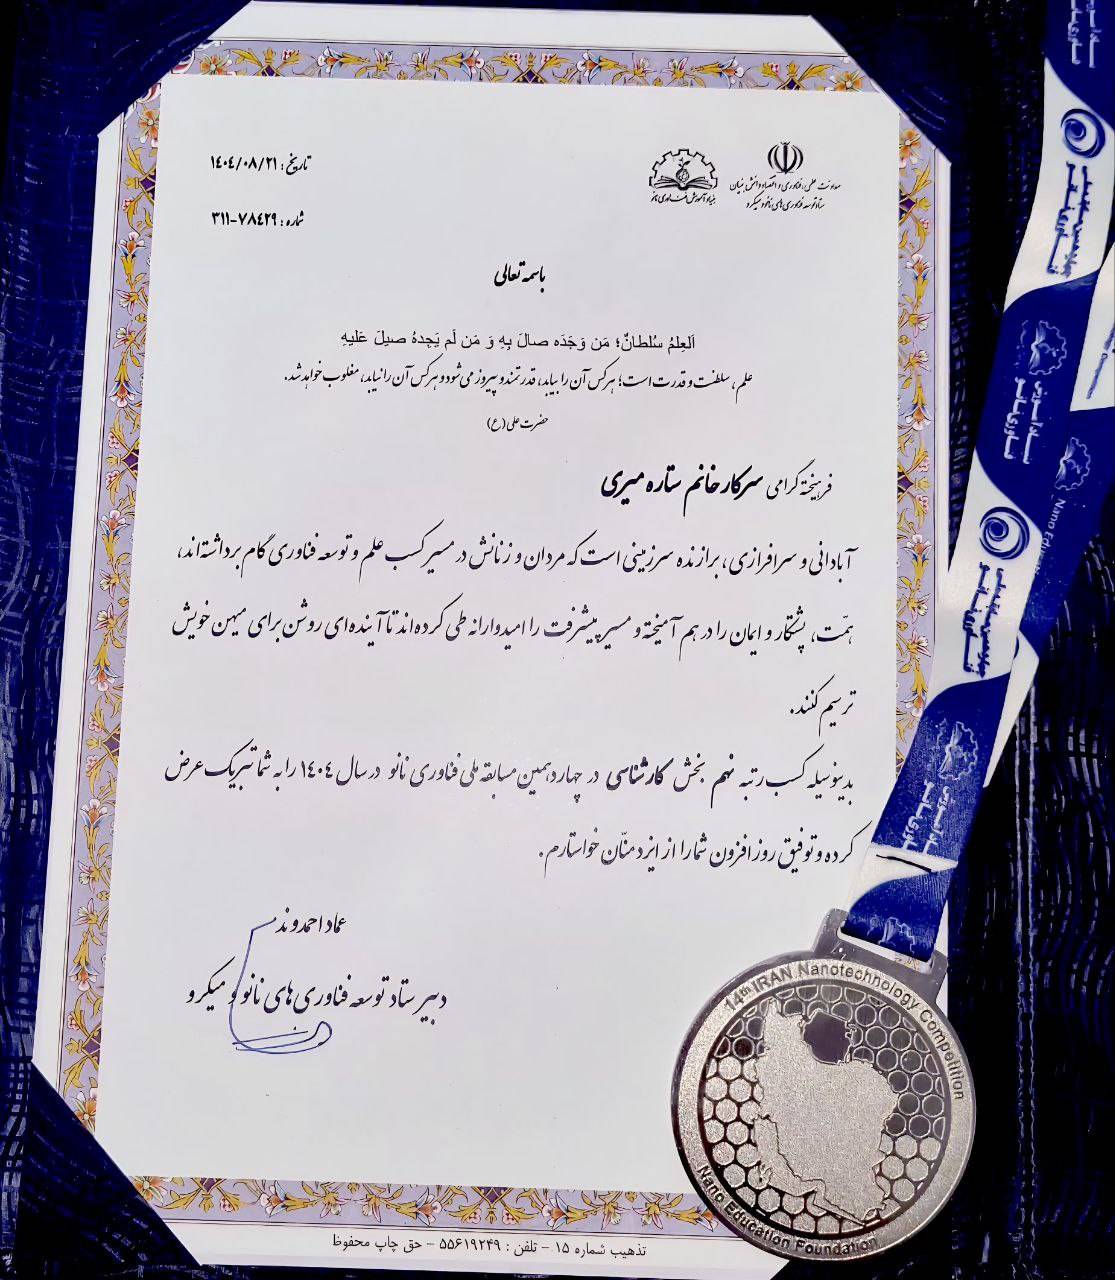 تاریخ: ۱۴۰۴/۰۸/۲۱
شماره: ۷۸۴۲۹-۳۱۱
معاونت علمی، فناوری و اقتصاد دانش بنیان
ستاد توسعه فناوری‌های نانو و میکرو
بنیاد آموزش فناوری نانو
باسمه تعالی
اَلعِلمُ سُلطانٌ؛ مَن وَجَدَه صالَ بِهِ وَ مَن لَم یَجِدهُ صیلَ عَلیهِ
علم، سلطنت و قدرت است؛ هر کس آن را بیابد، قدرتمند و پیروز می‌شود و هر کس آن را نیابد، مغلوب خواهد شد.
حضرت علی (ع)
فرهیخته گرامی سرکار خانم ستاره میری
آبادانی و سرافرازی، برازنده سرزمینی است که مردان و زنانش در مسیر کسب علم و توسعه فناوری گام برداشته‌اند،
همّت، پشتکار و ایمان را در هم آمیخته و مسیر پیشرفت را امیدوارانه طی کرده‌اند تا آینده‌ای روشن برای میهن خویش
ترسیم کنند.
بدینوسیله کسب رتبه نهم بخش کارشناسی در چهاردهمین مسابقه ملی فناوری نانو در سال ۱۴۰۴ را به شما تبریک عرض
کرده و توفیق روزافزون شما را از ایزد منّان خواستارم.
عماد احمدوند
دبیر ستاد توسعه فناوری‌های نانو و میکرو
14th IRAN Nanotechnology Competition
Nano Education Foundation
تذهیب شماره ۱۵ - تلفن: ۵۵۶۱۹۲۴۹ - حق چاپ محفوظ